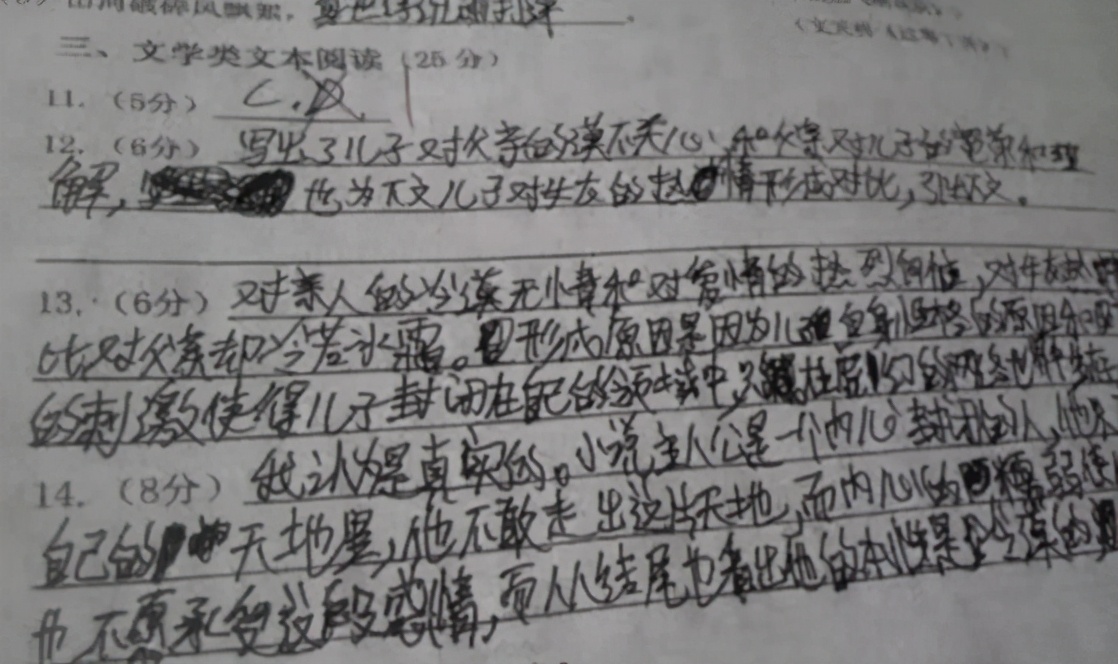 山河破碎风飘絮，身世浮沉雨打萍。
三、文学类文本阅读（25分）
11.（5分） C.D
12.（6分） 写出了儿子对父亲的漠不关心，和父亲对儿子的宽容和理
解， 也为下文儿子对女友的热情形成对比，引出下文。
13.（6分） 对亲人的冷漠无情和对爱情的热烈，对女友热
比对父亲却冷若冰霜。形成原因是因为儿自身性格的原因和
的刺激使得儿子封闭在自己的领域中，只
14.（8分） 我认为是真实的。小说主人公是一个内心封闭的人，他
自己的天地里，他不敢走出这片天地，而内心的懦弱使
他不愿承受这段感情，而从结尾也看出他的本性是冷漠的